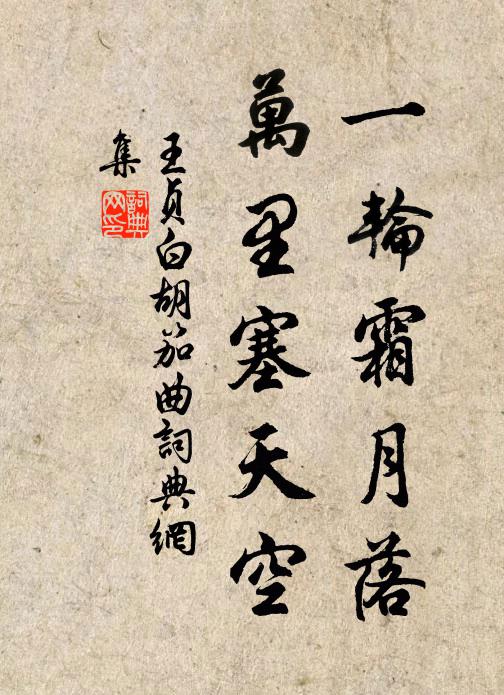 一輪霜月落
萬里塞天空
王貞白胡笳曲詞典網
集
詞典
网印